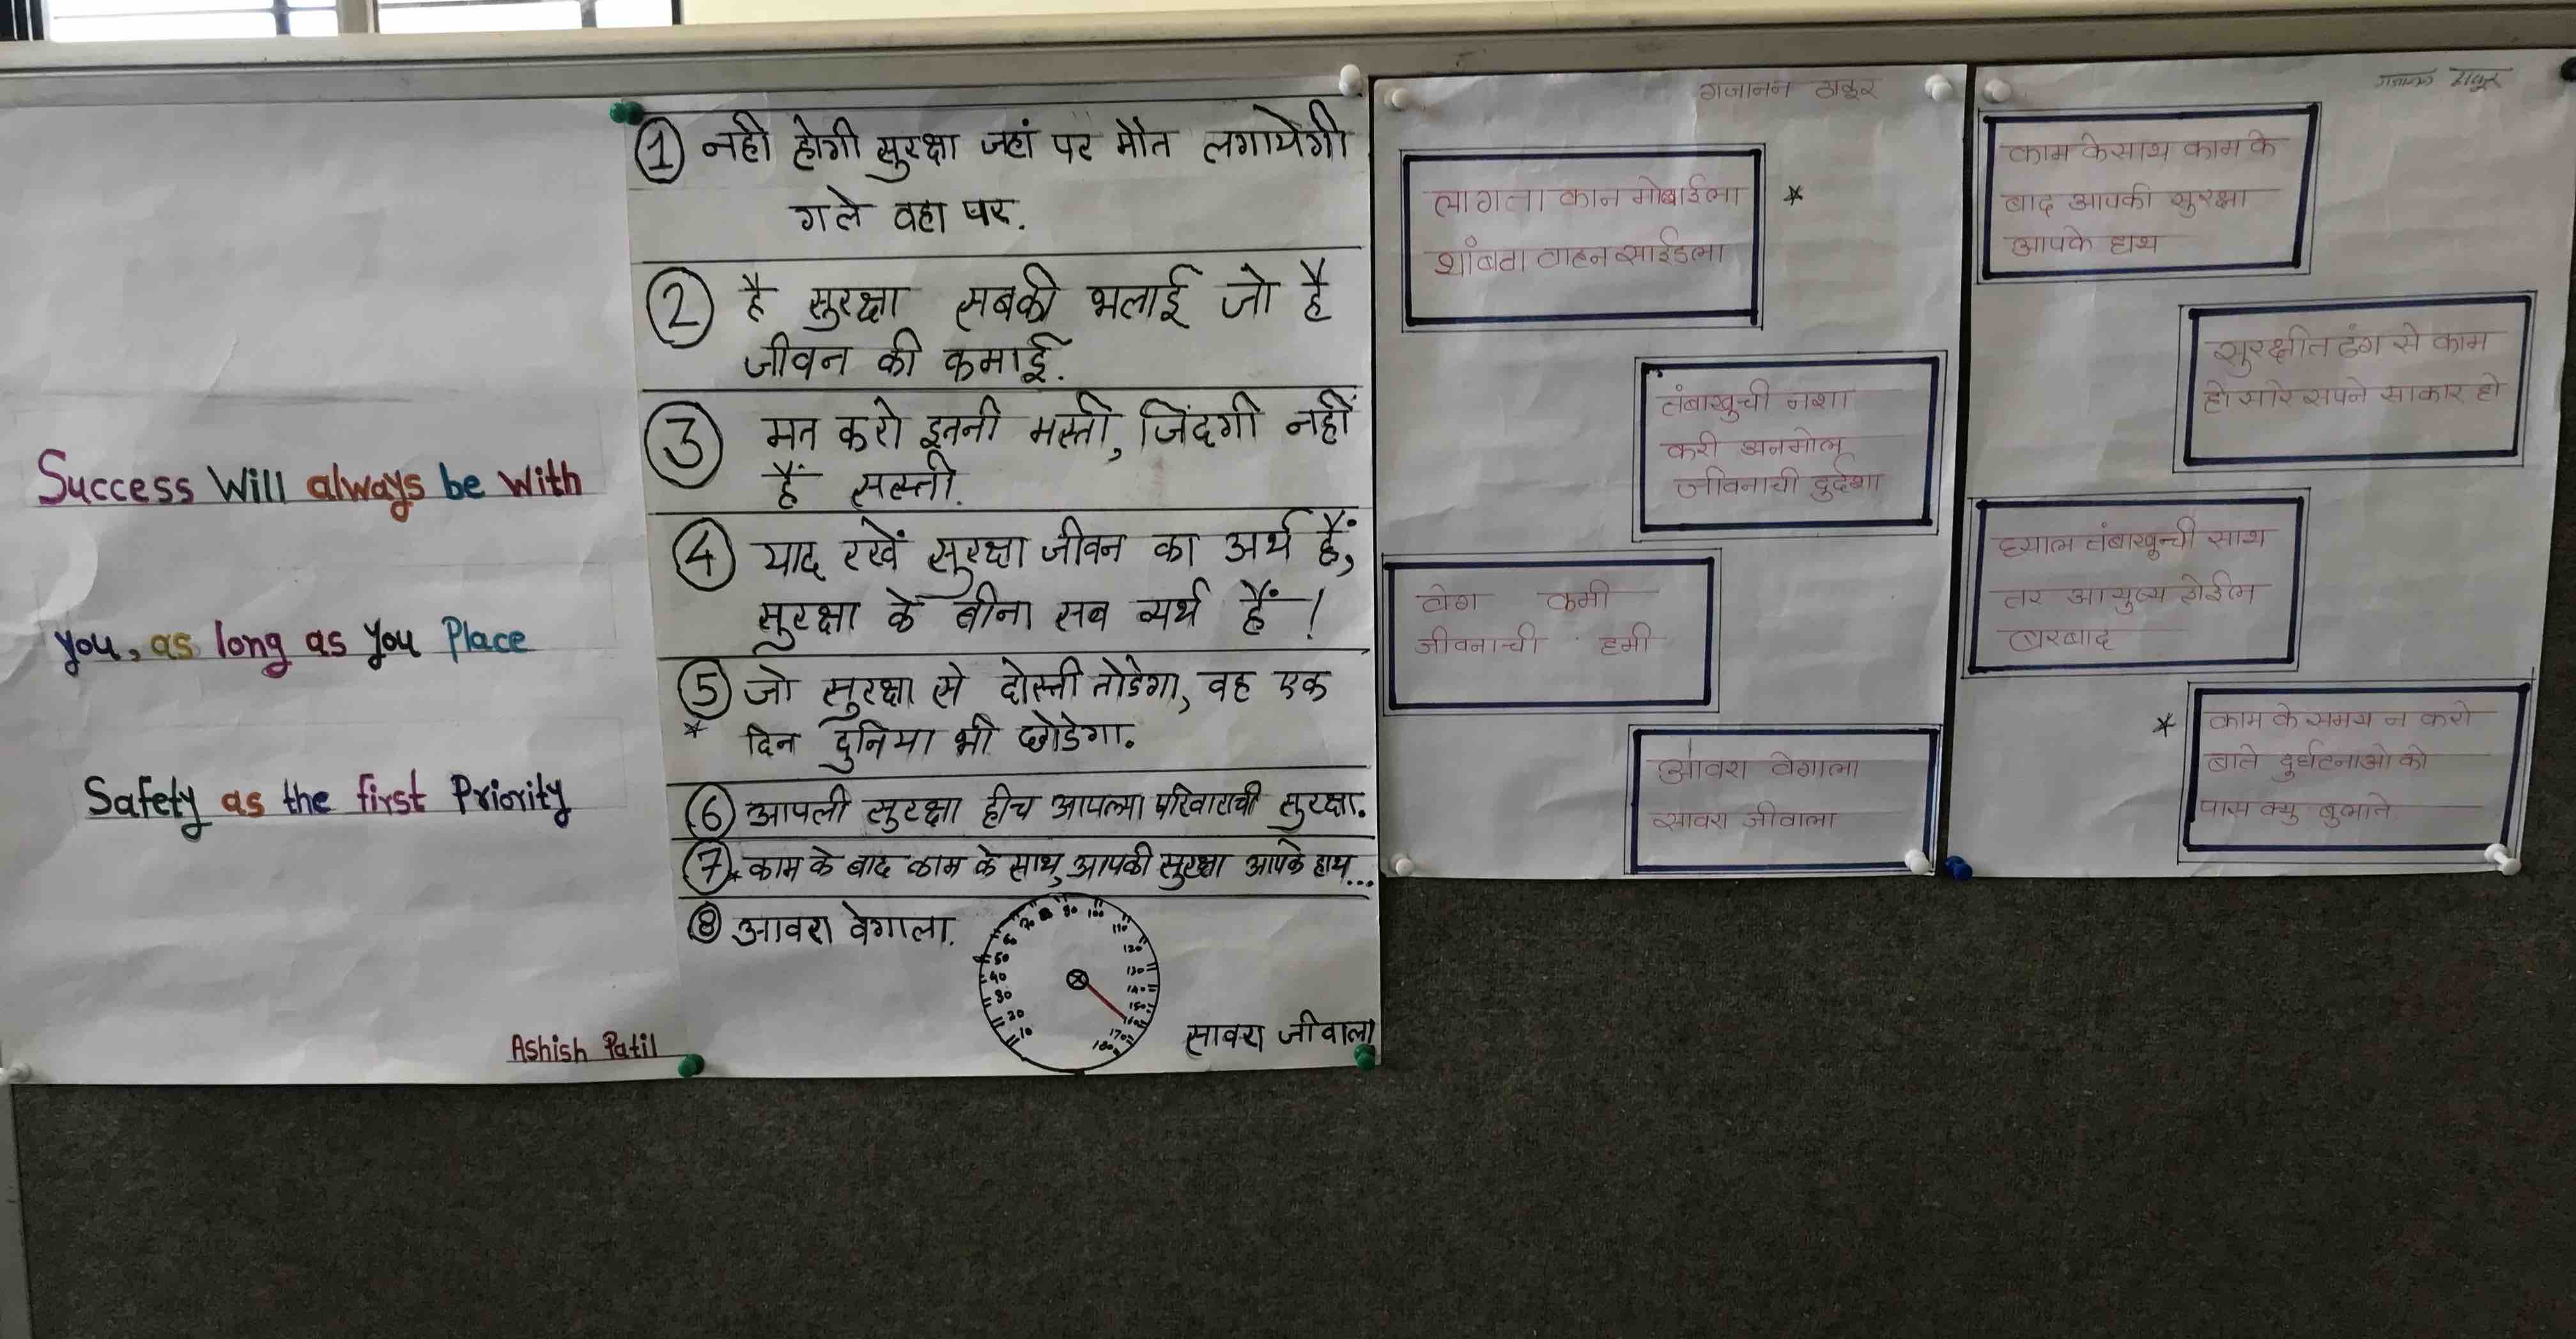 Success Will always be with
you, as long as you Place
Safety as the first Priority
Ashish Patil
① नही होगी सुरक्षा जहां पर मौत लगायेगी
गले वहा पर.
② है सुरक्षा सबकी भलाई जो है
जीवन की कमाई.
③ मत करो इतनी मस्ती, जिंदगी नहीं
हैं सस्ती.
④ याद रखें सुरक्षा जीवन का अर्थ हैं,
सुरक्षा के बीना सब व्यर्थ हैं !
⑤ जो सुरक्षा से दोस्ती तोडेगा, वह एक
* दिन दुनिया भी छोडेगा.
⑥ आपली सुरक्षा हीच आपल्या परिवाराची सुरक्षा.
⑦* काम के बाद काम के साथ, आपकी सुरक्षा आपके हाथ...
⑧ आवरा वेगाला.
10
20
30
40
50
60
70
80
90
100
110
120
130
140
150
160
170
180
सावरा जीवाला
गजानन ठाकूर
लागता कान मोबाईला *
थांबवा वाहन साईडला
तंबाखुची नशा
करी अनमोल
जीवनाची दुर्दशा
वेग कमी
जीवनाची हमी
आवरा वेगाला
सावरा जीवाला
गजानन ठाकूर
काम के साथ काम के
बाद आपकी सुरक्षा
आपके हाथ
सुरक्षीत ढंग से काम
हो सारे सपने साकार हो
घ्याल तंबाखूची साथ
तर आयुष्य होईल
बरबाद
* काम के समय न करो
बाते दुर्घटनाओ को
पास क्यु बुलाते